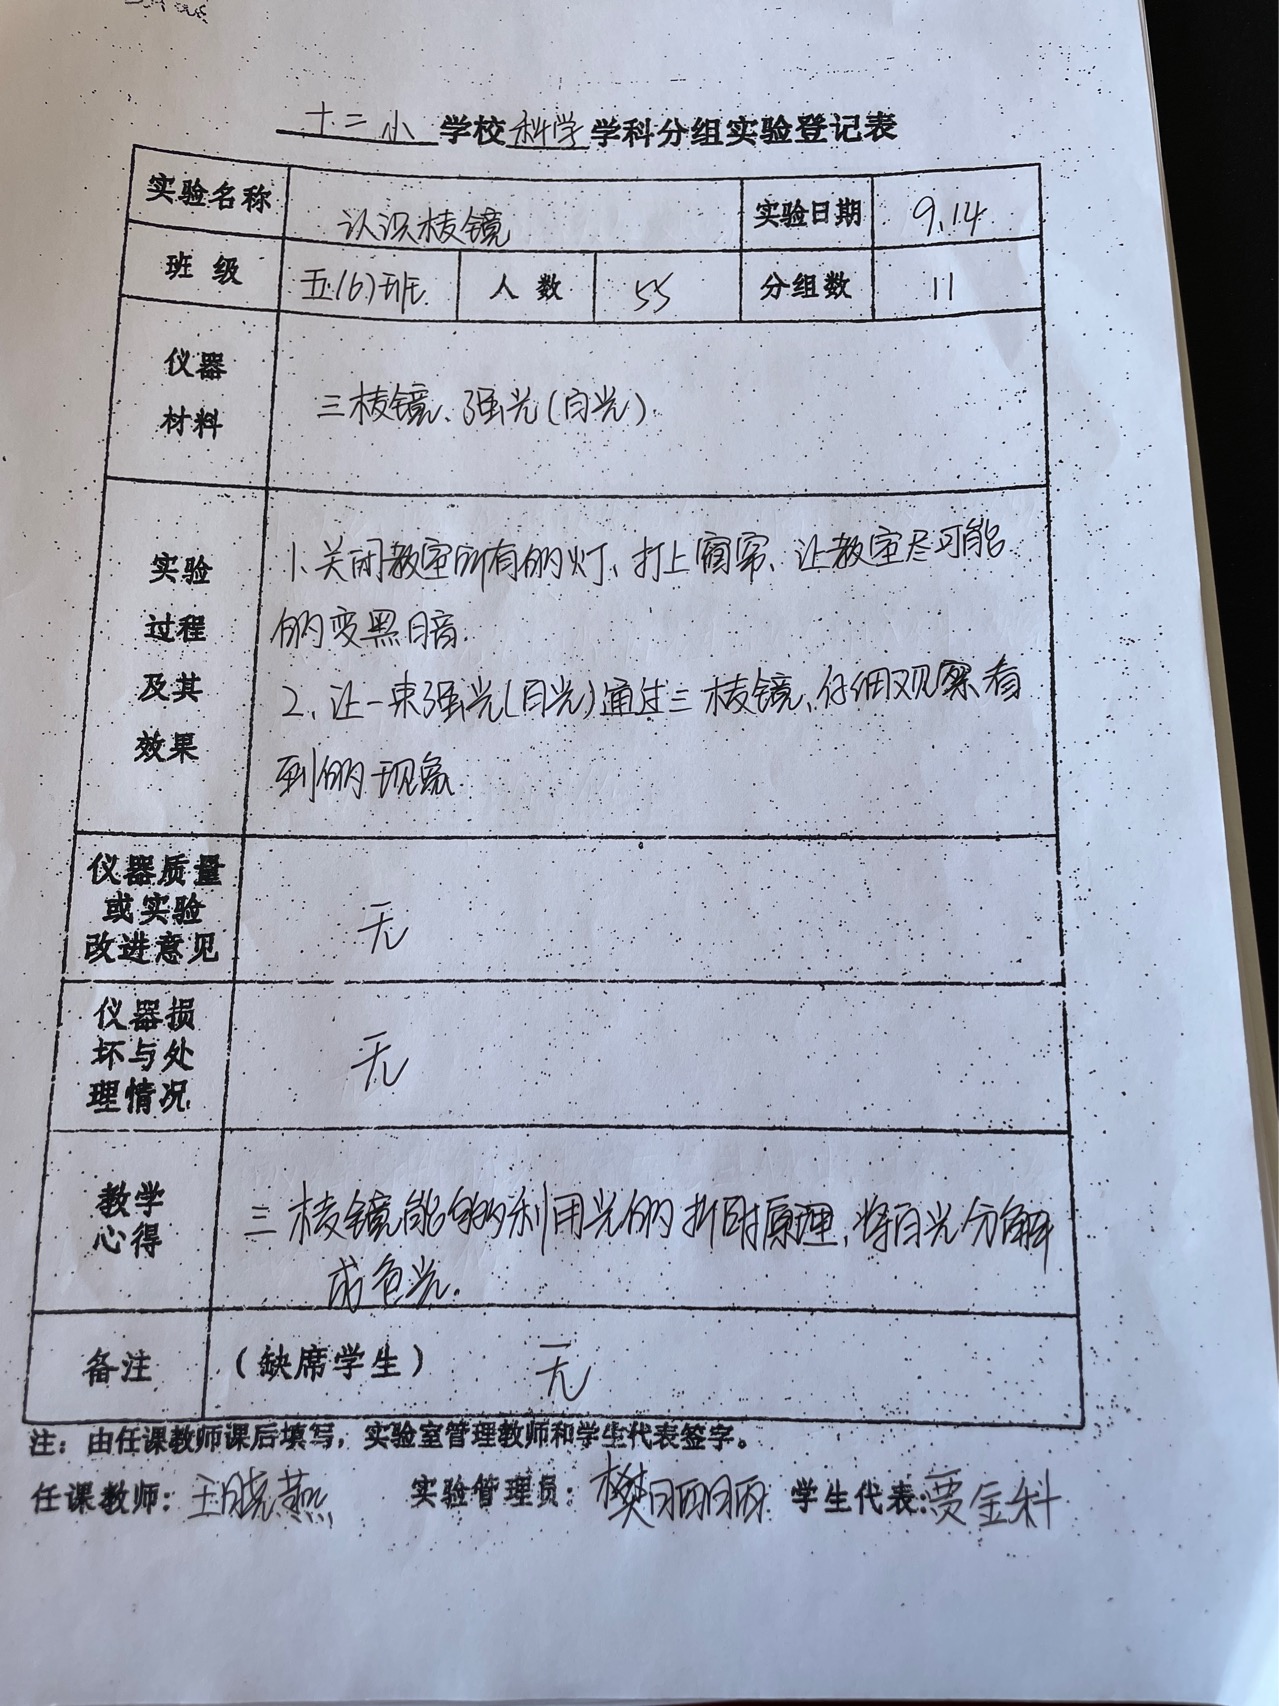 十二小学校科学学科分组实验登记表
实验名称 认识棱镜 实验日期 9.14
班级 五(6)班 人数 55 分组数 11
仪器
材料
三棱镜、强光(白光)
实验
过程
及其
效果
1、关闭教室所有的灯、打上窗帘、让教室尽可能
的变黑暗.
2、让一束强光(白光)通过三棱镜、仔细观察看
到的现象
仪器质量
或实验
改进意见
无
仪器损
坏与处
理情况
无
教学
心得
三棱镜能够利用光的折射原理,将白光分解
成色光.
备注 (缺席学生) 无
注：由任课教师课后填写，实验室管理教师和学生代表签字。
任课教师：王晓燕 实验管理员：樊丽丽 学生代表:贾金科